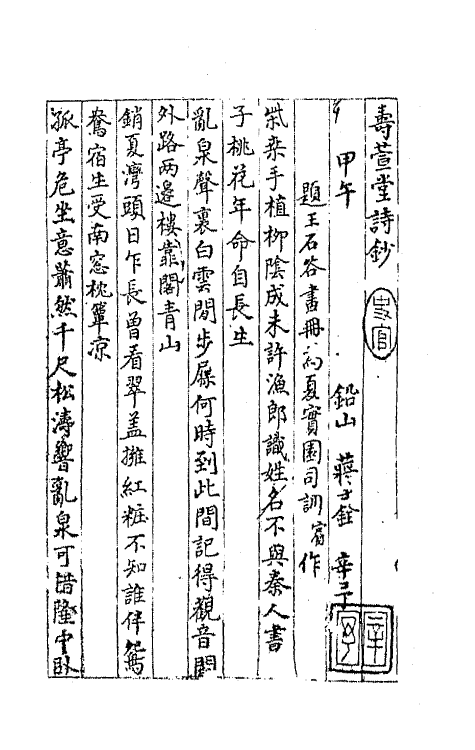 壽萱堂詩鈔
甲午 鉛山 蔣士銓
題王石谷畫冊為夏實園司訓甯作
柴桑手植柳陰成未許漁郎識姓名不與秦人書
子桃花年命自長生
亂泉聲裏白雲間步屧何時到此間記得觀音門
外路两邊樓靠閣青山
銷夏灣頭日乍長曾看翠盖擁紅粧不知誰伴鴛
鴦宿生受南窓枕簟凉
孤亭危坐意蕭然千尺松濤響亂泉可惜隆中卧